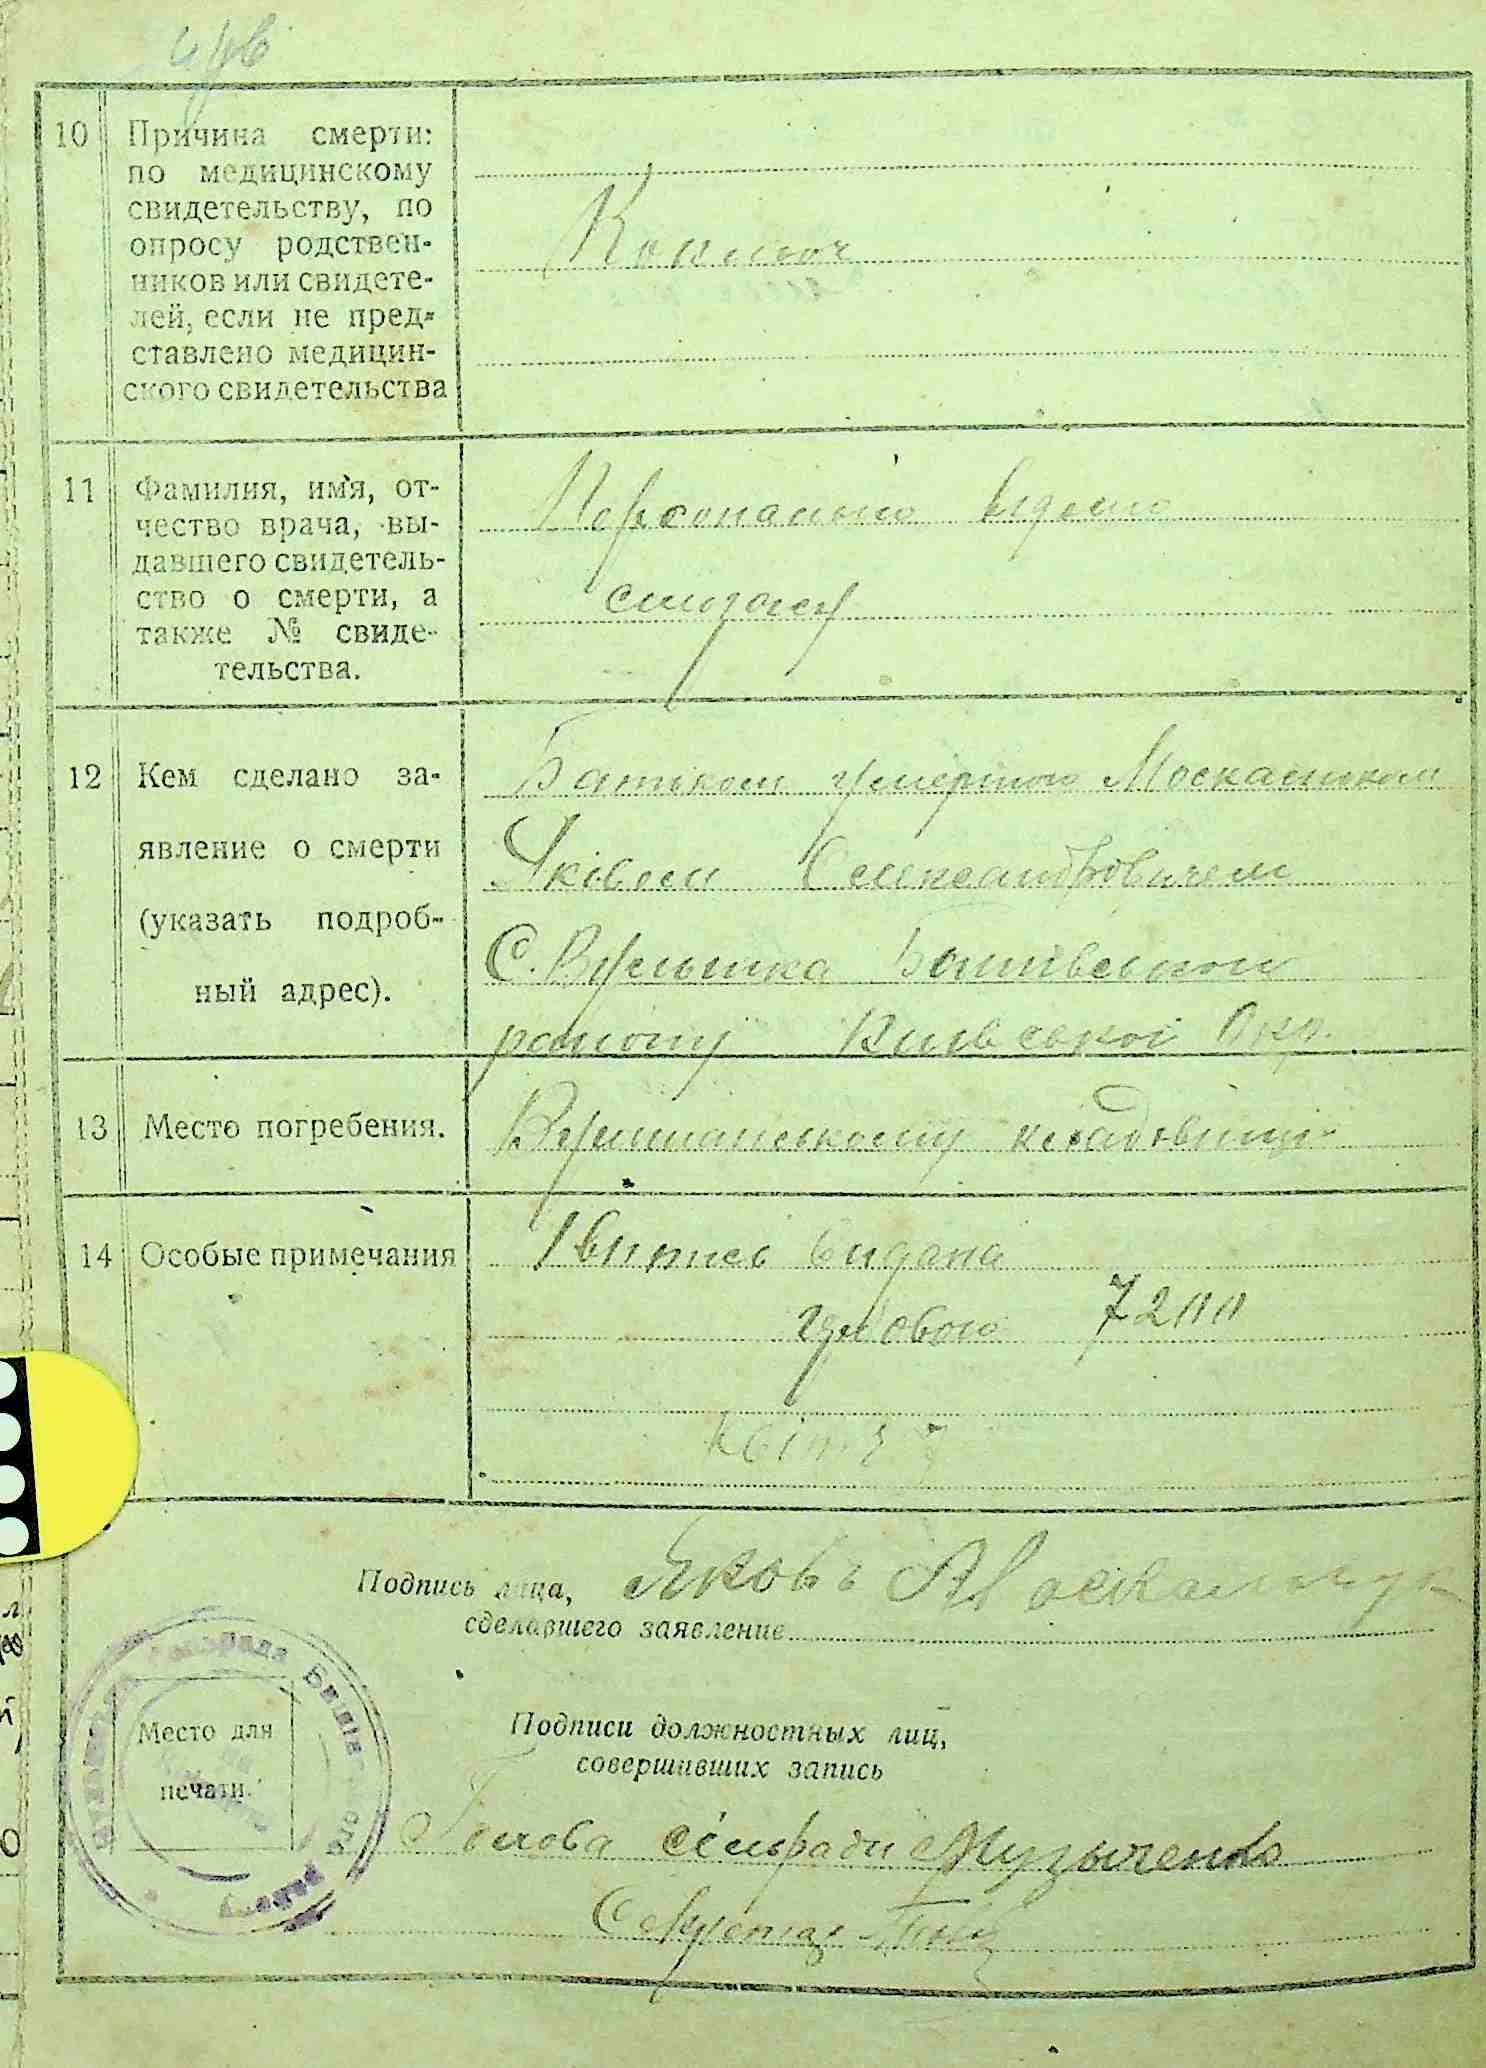 10 Причина смерти:
по медицинскому
свидетельству, по
опросу родствен-
ников или свидете-
лей, если не пред-
ставлено медицин-
ского свидетельства
Коклюш
11 Фамилия, имя, от-
чество врача, вы-
давшего свидетель-
ство о смерти, а
также № свиде-
тельства.
Персонально відомо
12 Кем сделано за-
явление о смерти
(указать подроб-
ный адрес).
Батьком умерлого Москальчуком
Яківом Олександровичем
С.
району Київської Окр.
13 Место погребения.
кладовищі
14 Особые примечания
1 випись видана
гусовою 7200
Подпись лица,
сделавшего заявление
Яковъ Москальчук
Место для
печати.
Подписи должностных лиц,
совершивших запись
Голова сільради Музыченко
Секретар